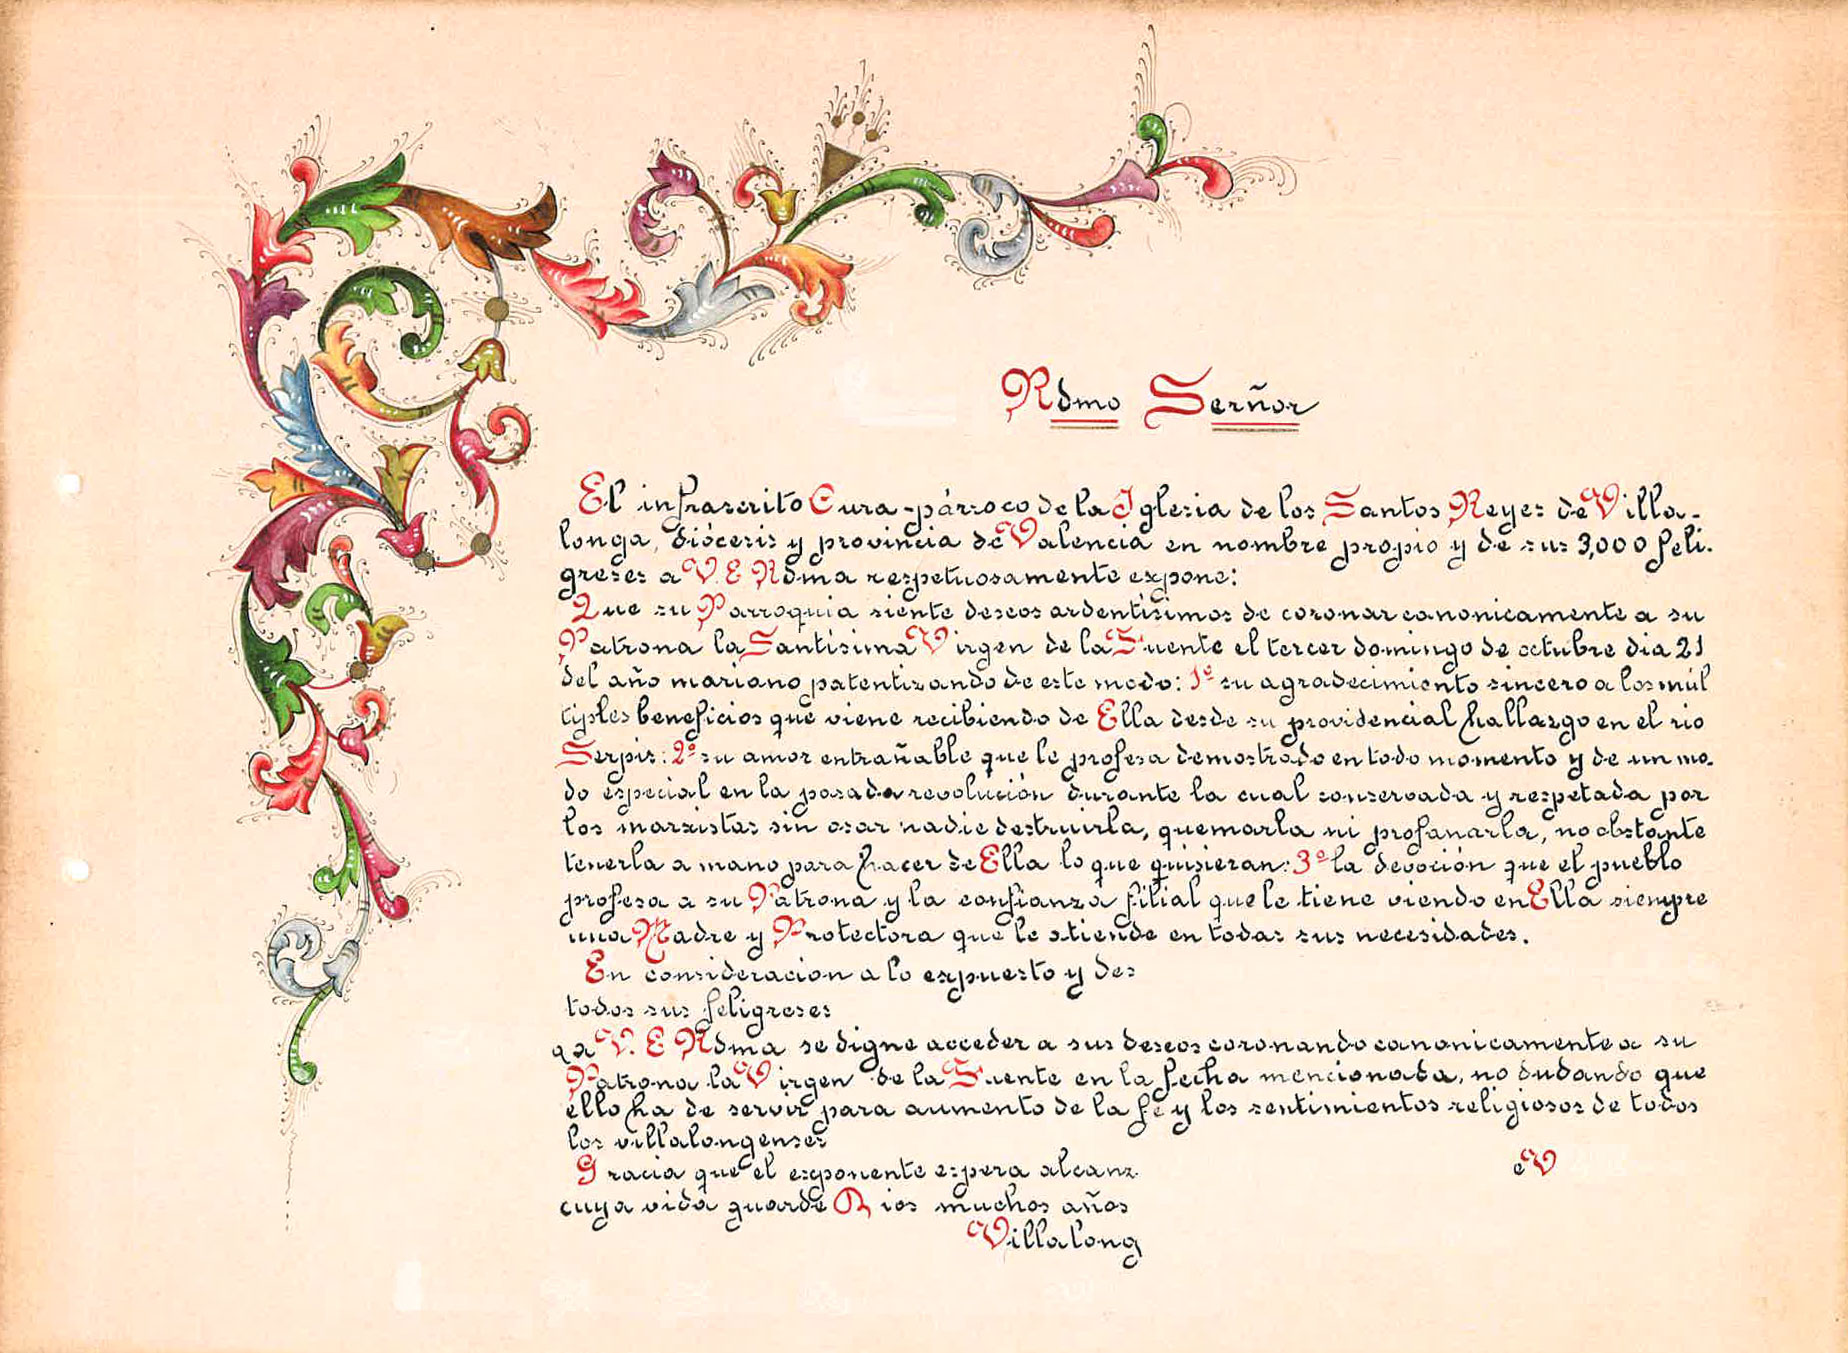 Rdmo Serñor
El infrascrito Cura-párroco de la Iglesia de los Santos Reyes de Villa-
longa, diócesis y provincia de Valencia en nombre propio y de sus 3,000 feli-
greses a V. E Rdma respetuosamente expone:
Que su Parroquia siente deseos ardentísimos de coronar canonicamente a su
Patrona la Santísima Virgen de la Fuente el tercer domingo de octubre dia 21
del año mariano patentizando de este modo: 1º su agradecimiento sincero a los múl
tiples beneficios que viene recibiendo de Ella desde su providencial hallazgo en el rio
Serpis: 2º su amor entrañable que le profesa demostrado en todo momento y de un mo-
do especial en la pasada revolución durante la cual conservada y respetada por
los marxistas sin osar nadie destruirla, quemarla ni profanarla, no obstante
tenerla a mano para hacer de Ella lo que quisieran: 3º la devoción que el pueblo
profesa a su Patrona y la confianza filial que le tiene viendo en Ella siempre
una Madre y Protectora que le atiende en todas sus necesidades.
En consideracion a lo expuesto y des
todos sus feligreses
qa V. E Rdma se digne acceder a sus deseos coronando canonicamente a su
Patrona la Virgen de la Fuente en la fecha mencionada, no dudando que
ello ha de servir para aumento de la fe y los sentimientos religiosos de todos
los villalongenses
Gracia que el exponente espera alcanz eV
cuya vida guarde Dios muchos años
Villalong